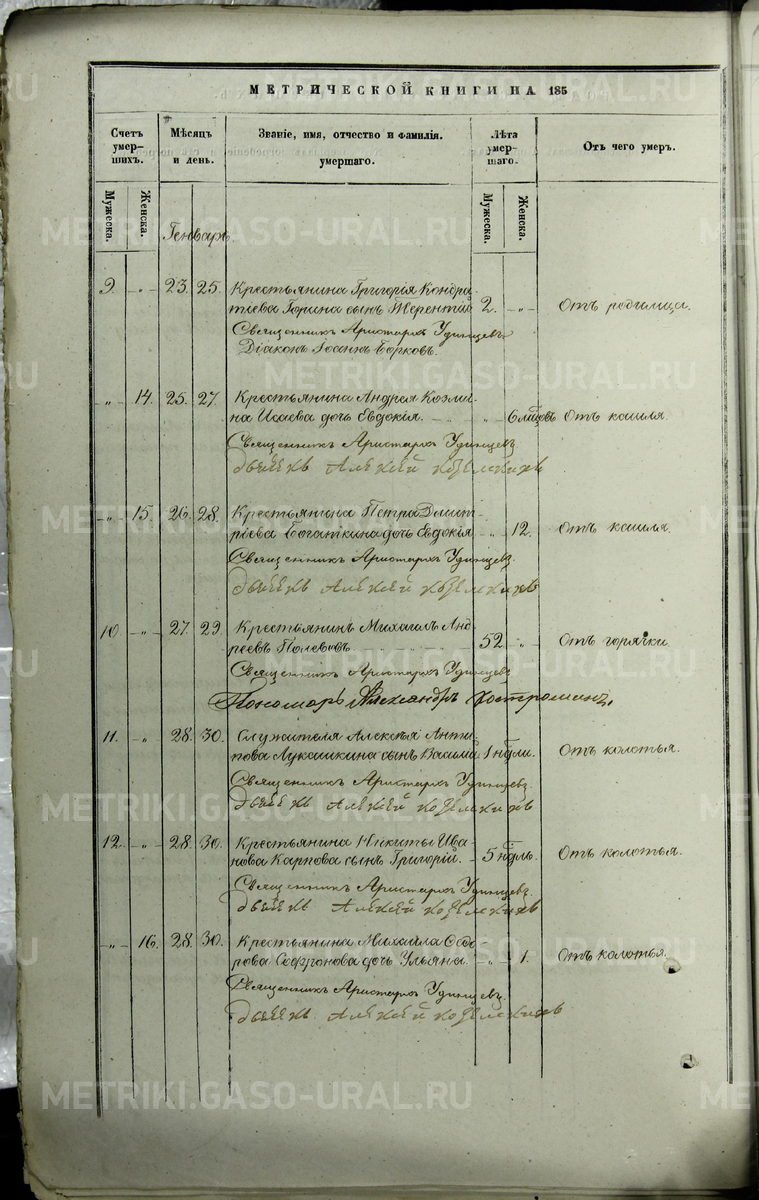 МЕТРИЧЕСКОЙ КНИГИ НА 185
Счетъ умер-шихъ. Мѣсяцъ и день. Званіе, имя, отчество и фамилія. умершаго. Лѣта умер-шаго. Отъ чего умеръ.
Мужеска. Женска. Мужеска. Женска.
Генварь
9. „ 23. 25. Крестьянина Григорія Кондра
тіева Горина сынъ Терентій 2. „ Отъ родимца.
Священникъ Аристархъ Удинцевъ
Діаконъ Іоаннъ Борковъ.
„ 14. 25. 27. Крестьянина Андрея Козми
на Исаева дочь Евдокія. „ 6 мѣсцовъ Отъ кашля.
Священникъ Аристархъ Удинцевъ
дьячекъ Алексей
„ 15. 26. 28. Крестьянина Петра Дмит
ріева Богаткина дочь Евдокія „ 12. Отъ кашля.
Священникъ Аристархъ Удинцевъ
дьячекъ Алексей
10. „ 27. 29. Крестьянинъ Михаилъ Анд
реевъ Полевовъ 52 „ Отъ горячки.
Священникъ Аристархъ Удинцевъ
Пономарь Александръ Костроминъ.
11. „ 28. 30. Служителя Алексѣя Анти
пова Лукашкина сынъ Василій 1 ндли. Отъ колотья.
Священникъ Аристархъ Удинцевъ
дьячекъ Алексей
12. „ 28. 30. Крестьянина Никиты Ива
нова Карпова сынъ Григорій. 5 ндль. Отъ колотья.
Священникъ Аристархъ Удинцевъ.
дьячекъ Алексей
„ 16. 28. 30. Крестьянина Михаила Ѳедо
рова Софронова дочь Ульяна. „ 1. Отъ колотья.
Священникъ Аристархъ Удинцевъ
дьячекъ Алексей
METRIKI.GASO-URAL.RU